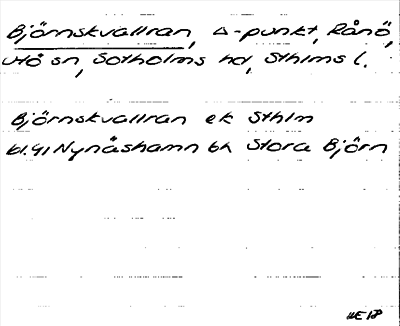 Björnskvallran, △-punkt, Rånö,
Utö sn, Sotholms hd, Sthlms l.
Björnskvallran ek Sthlm
61.41 Nynäshamn bh Stora Björn